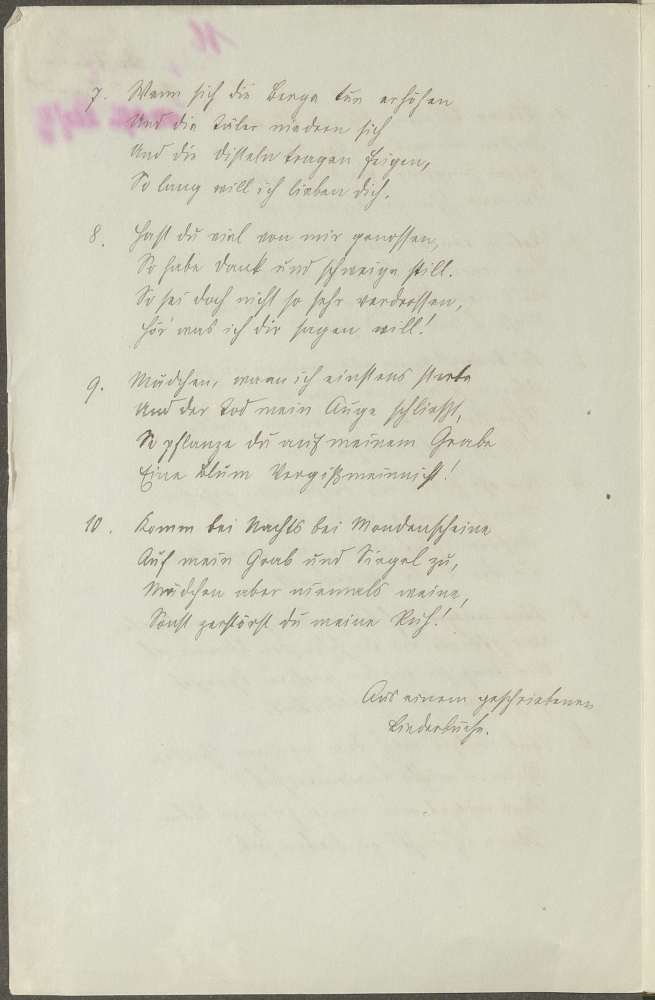 7. Wenn sich die Berge tun erhöhen
Und die Täler niedern sich
Und die Disteln tragen Feigen,
So lang will ich lieben dich.
8. Hast du viel von mir genossen,
So habe Dank und schweige still.
So sei doch nicht so sehr verdrossen,
Hör' was ich dir sagen will!
9. Mädchen, wenn ich einstens sterbe
Und der Tod mein Auge schließt,
So pflanze du auf meinem Grabe
Eine Blum Vergißmeinnicht!
10. Komm bei Nachts bei Mondenscheine
Auf mein Grab und Siegel zu,
Mädchen aber niemals weine,
Sonst zerstörst du meine Ruh!
Aus einem geschriebenen
Liederbuche.